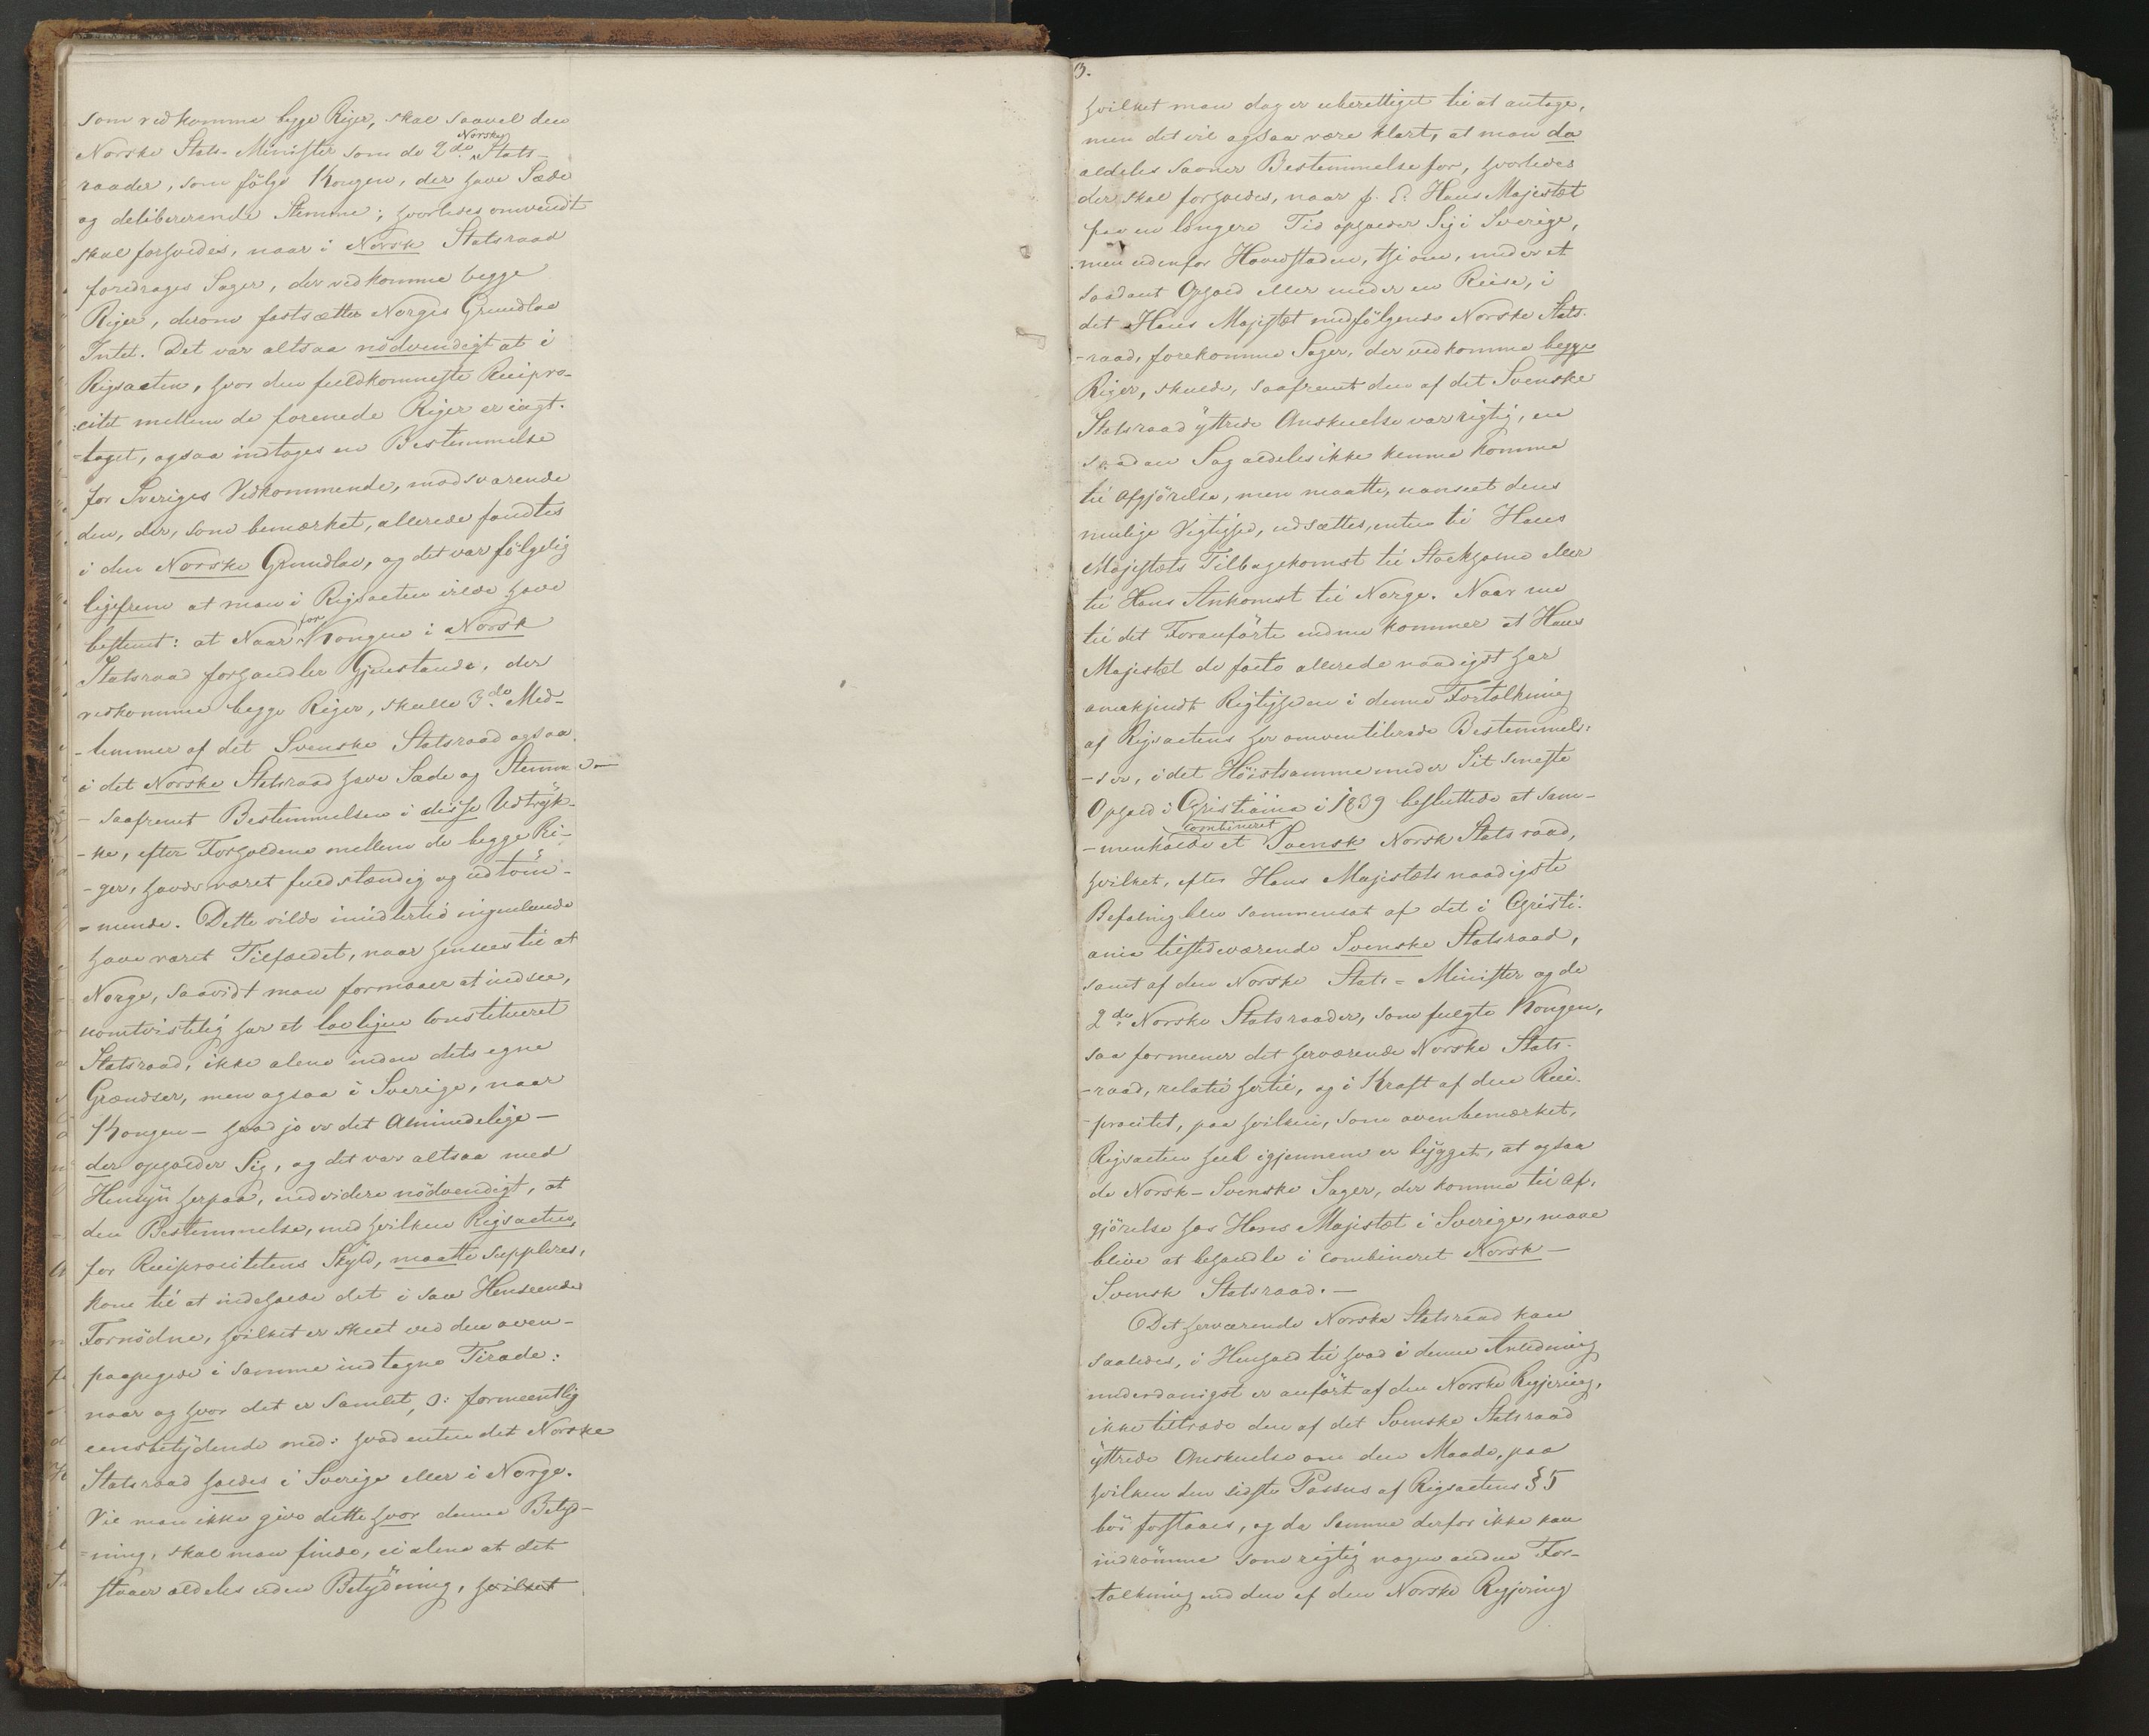 som vedkomme begge Riger, skal saavel den
Norske Stats-Minister som de 2de Norske Stats-
raader, som følge Kongen, der have Sæde
og delibererende Stemme; hvorledes omvendt
skal forholdes, naar i Norsk Statsraad
foredrages Sager, der vedkomme begge
Riger, derom fastsætter Norges Grundlov
Intet. Det var altsaa nödvendigt at i
Rigsacten, hvor den fuldkomneste Recipro-
citet mellem de forenede Riger er iagt-
-taget, ogsaa indtoges en Bestemmelse
for Sveriges Vedkommende, modsvarende
den, der, som bemærket, allerede fandtes
i den Norske Grundlov, og det var fölgelig
ligefrem at man i Rigsacten vilde have
bestemt: at Naar for Kongen i Norsk
Statsraad forhandles Gjenstande, der
vedkomme begge Riger, skulle 3de Med-
-lemmer af det Svenske Statsraad ogsaa
i det Norske Statsraad have Sæde og Stemme -
- saafremt Bestemmelsen i disse Udtryk-
-ke, efter Forholdene mellem de begge Ri-
-ger, havde været fuldstændig og udtöm-
-mende. Dette vilde imidlertid ingenlunde
have været Tilfældet, naar hensees til at
Norge, saavidt man formaaer at indsee,
uomtvistelig har et lovligen constitueret
Statsraad, ikke alene inden dets egne
Grændser, men ogsaa i Sverige, naar
Kongen - hvad jo er det Almindelige -
der opholder Sig, og det var altsaa med
Hensyn herpaa, endvidere nödvendigt, at
den Bestemmelse, med hvilken Rigsacten,
for Reciprocitetens Skyld, maatte suppleres,
kom til at indeholde det i saa Henseende
Fornödne, hvilket er skeet ved den oven-
paapegede i samme indtagne Tirade:
naar og hvor det er samlet, ɔ: formeentlig
eensbetydende med: hvad enten det Norske
Statsraad holdes i Sverige eller i Norge.
Vil man ikke give dette hvor denne Betyd-
-ning, skal man finde, ei alene at det
staaer aldeles uden Betydning, hvilket
3.
hvilket man dog er uberettiget til at antage,
men det vil ogsaa være klart, at man da
aldeles savner Bestemmelse for, hvorledes
der skal forholdes, naar f. Ex. Hans Majestæt
paa en længere Tid opholder Sig i Sverige,
men udenfor Hovedstaden, thi om, under et
saadant Ophold eller under en Reise, i
det Hans Majestæt medfölgende Norske Stats-
-raad, forekomme Sager, der vedkomme begge
Riger, skulde, saafremt den af det Svenske
Statsraad yttrede Anskuelse var rigtig, en
saadan Sag aldeles ikke kunne komme
til Afgjörelse, men maatte, uanseet dens
mulige Vigtighed, udsættes, enten til Hans
Majestæts Tilbagekomst til Stockholm eller
til Hans Ankomst til Norge. Naar nu
til det Foranförte endnu kommer at Hans
Majestæt de facto allerede naadigst har
anerkjendt Rigtigheden i denne Fortolkning
af Rigsactens her omventilerede Bestemmel-
-ser, idet Höistsamme under Sit seneste
Ophold i Christiania i 1839 besluttede at sam-
-menkalde et combineret Svensk Norsk Statsraad,
hvilket, efter Hans Majestæts naadigste
Befaling blev sammensat af det i Christi-
ania tilstedeværende Svenske Statsraad,
samt af den Norske Stats-Minister og de
2de Norske Statsraader, som fulgte Kongen,
saa formener det herværende Norske Stats-
-raad, relativ hertil, og i Kraft af den Reci-
-procitet, paa hvilken, som ovenbemærket,
Rigsacten heelt igjennem er bygget, at ogsaa
de Norsk-Svenske Sager, der komme til Af-
gjörelse hos Hans Majestæt i Sverige, maae
blive at behandle i combineret Norsk-
Svensk Statsraad. -
Det herværende Norske Statsraad kan
saaledes, i Henhold til hvad i denne Anledning
underdanigst er anfört af den Norske Regjering,
ikke tiltræde den af det Svenske Statsraad
yttrede Anskuelse om den Maade, paa
hvilken den sidste Passus af Rigsactens § 5
bör forstaaes, og da Samme derfor ikke kan
indrömme som rigtig nogen anden For-
tolkning end den af den Norske Regjering